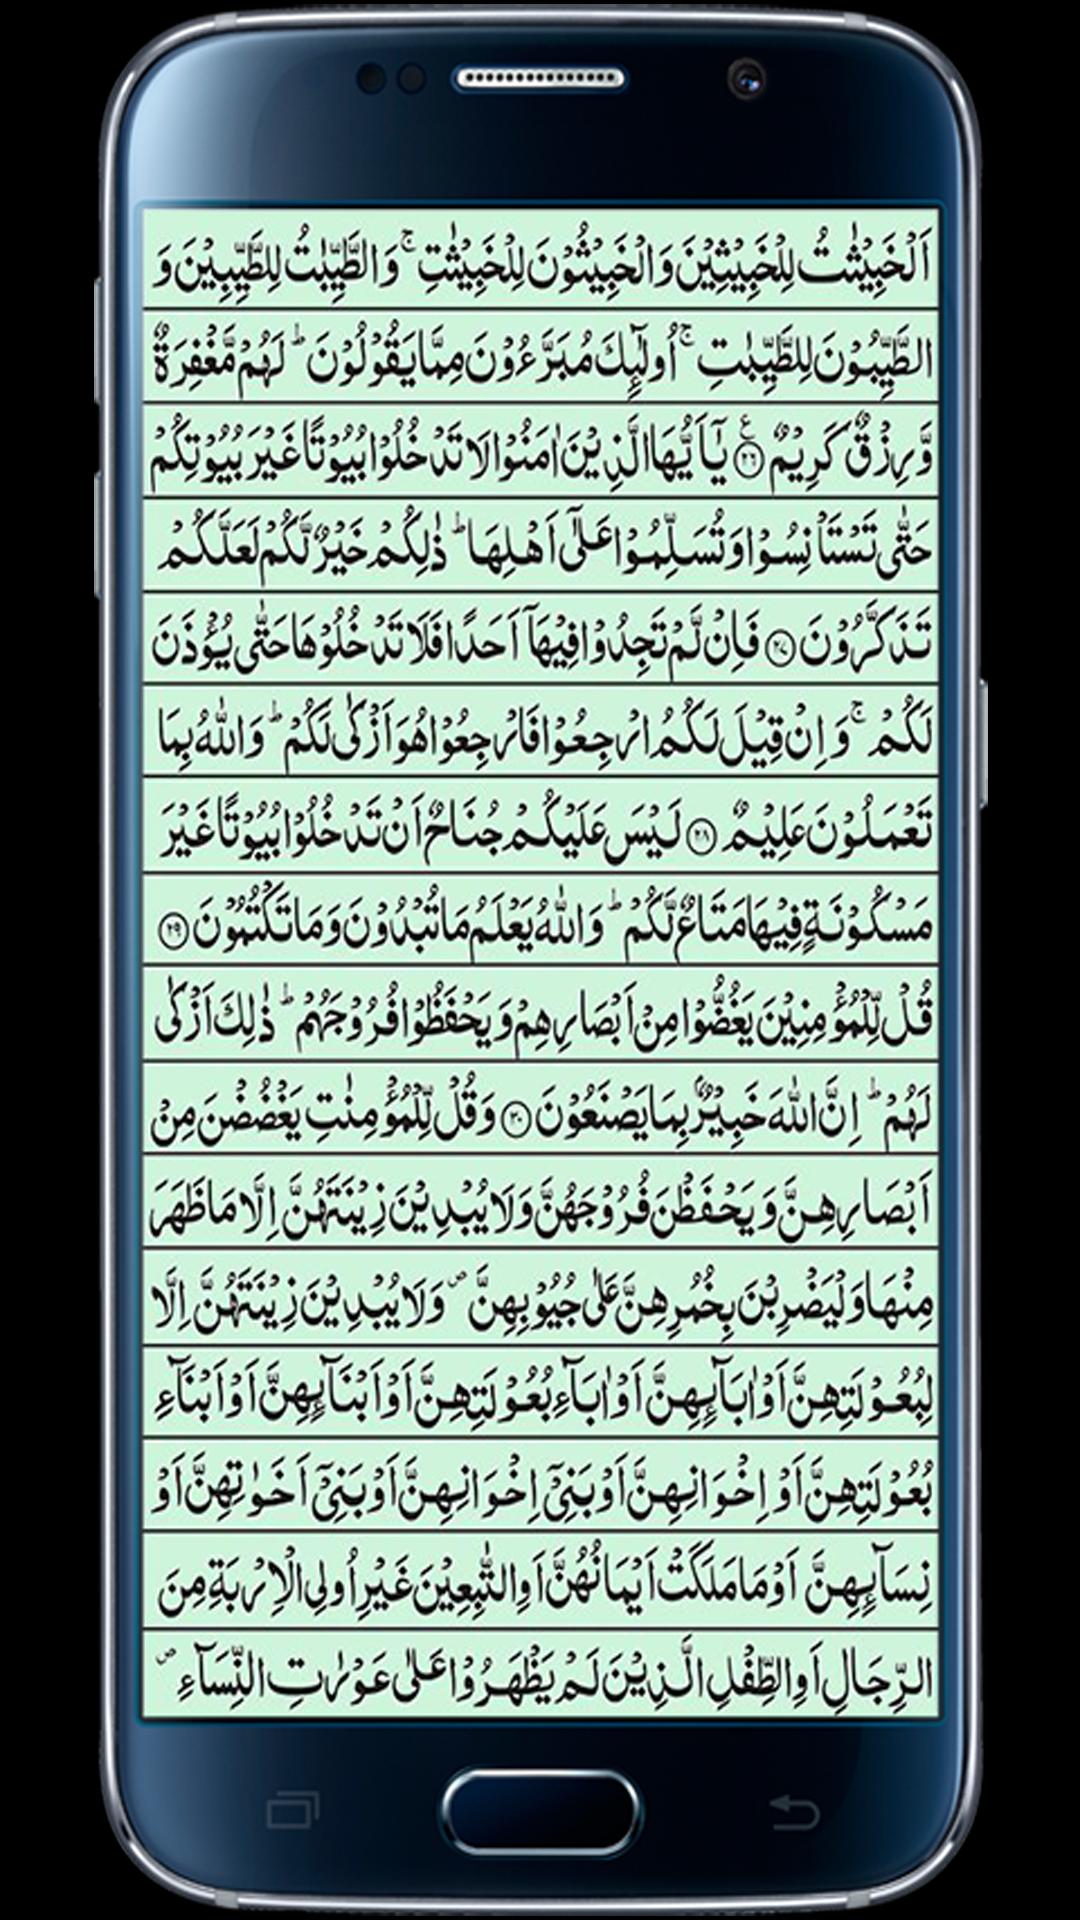 اَلْخَبِیْثٰتُ لِلْخَبِیْثِیْنَ وَالْخَبِیْثُوْنَ لِلْخَبِیْثٰتِ ۚ وَالطَّیِّبٰتُ لِلطَّیِّبِیْنَ وَ
الطَّیِّبُوْنَ لِلطَّیِّبٰتِ ۚ اُولٰٓئِكَ مُبَرَّءُوْنَ مِمَّا یَقُوْلُوْنَ ؕ لَهُمْ مَّغْفِرَةٌ
وَّرِزْقٌ كَرِیْمٌ ۲۶ ع یٰۤاَیُّهَا الَّذِیْنَ اٰمَنُوْا لَا تَدْخُلُوْا بُیُوْتًا غَیْرَ بُیُوْتِكُمْ
حَتّٰی تَسْتَاْنِسُوْا وَتُسَلِّمُوْا عَلٰۤی اَهْلِهَا ؕ ذٰلِكُمْ خَیْرٌ لَّكُمْ لَعَلَّكُمْ
تَذَكَّرُوْنَ ۲۷ فَاِنْ لَّمْ تَجِدُوْا فِیْهَاۤ اَحَدًا فَلَا تَدْخُلُوْهَا حَتّٰی یُؤْذَنَ
لَكُمْ ۚ وَاِنْ قِیْلَ لَكُمُ ارْجِعُوْا فَارْجِعُوْا هُوَ اَزْكٰی لَكُمْ ؕ وَاللّٰهُ بِمَا
تَعْمَلُوْنَ عَلِیْمٌ ۲۸ لَیْسَ عَلَیْكُمْ جُنَاحٌ اَنْ تَدْخُلُوْا بُیُوْتًا غَیْرَ
مَسْكُوْنَةٍ فِیْهَا مَتَاعٌ لَّكُمْ ؕ وَاللّٰهُ یَعْلَمُ مَا تُبْدُوْنَ وَمَا تَكْتُمُوْنَ ۲۹
قُلْ لِّلْمُؤْمِنِیْنَ یَغُضُّوْا مِنْ اَبْصَارِهِمْ وَیَحْفَظُوْا فُرُوْجَهُمْ ؕ ذٰلِكَ اَزْكٰی
لَهُمْ ؕ اِنَّ اللّٰهَ خَبِیْرٌۢ بِمَا یَصْنَعُوْنَ ۳۰ وَقُلْ لِّلْمُؤْمِنٰتِ یَغْضُضْنَ مِنْ
اَبْصَارِهِنَّ وَیَحْفَظْنَ فُرُوْجَهُنَّ وَلَا یُبْدِیْنَ زِیْنَتَهُنَّ اِلَّا مَا ظَهَرَ
مِنْهَا وَلْیَضْرِبْنَ بِخُمُرِهِنَّ عَلٰی جُیُوْبِهِنَّ ۪ وَلَا یُبْدِیْنَ زِیْنَتَهُنَّ اِلَّا
لِبُعُوْلَتِهِنَّ اَوْ اٰبَآئِهِنَّ اَوْ اٰبَآءِ بُعُوْلَتِهِنَّ اَوْ اَبْنَآئِهِنَّ اَوْ اَبْنَآءِ
بُعُوْلَتِهِنَّ اَوْ اِخْوَانِهِنَّ اَوْ بَنِیْۤ اِخْوَانِهِنَّ اَوْ بَنِیْۤ اَخَوٰتِهِنَّ اَوْ
نِسَآئِهِنَّ اَوْ مَا مَلَكَتْ اَیْمَانُهُنَّ اَوِ التّٰبِعِیْنَ غَیْرِ اُولِی الْاِرْبَةِ مِنَ
الرِّجَالِ اَوِ الطِّفْلِ الَّذِیْنَ لَمْ یَظْهَرُوْا عَلٰی عَوْرٰتِ النِّسَآءِ ۪